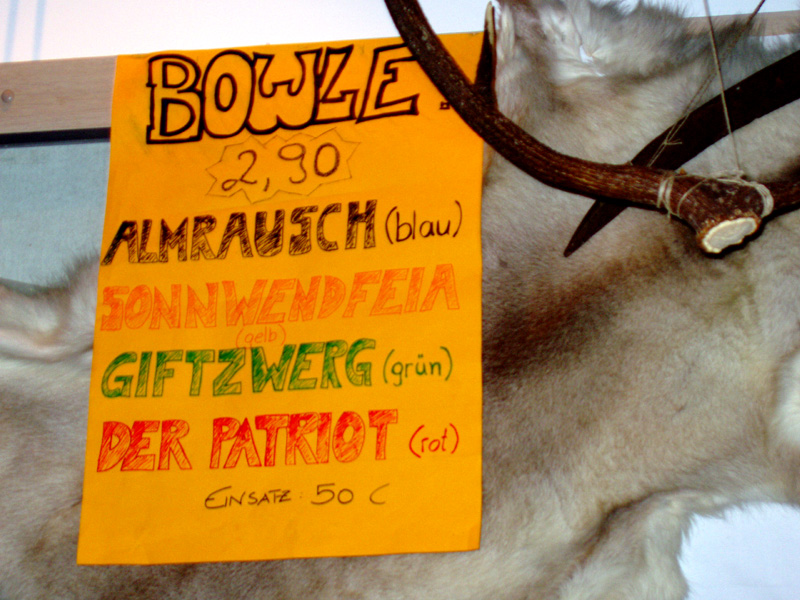 BOWLE:
2,90
ALMRAUSCH (blau)
SONNWENDFEIA
(gelb)
GIFTZWERG (grün)
DER PATRIOT (rot)
EINSATZ: 50 C